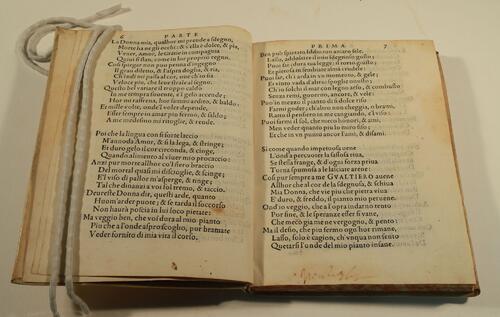 6 PARTE
La Donna mia, qualhor mi prende a sdegno,
Morte ha ne gli occhi: & s'ella è dolce, & pia,
Vener, Amor, le Gratie in compagnia
Qui si stan, come in lor proprio regno.
Così spiegar non può penna d'ingegno
Il gran diletto, & l'aspra doglia, & ria,
Ch'indi mi passa al cor, une ch'in sia
Veloce più, che strale giunto al segno.
Questo bel variar il troppo caldo
In me tempra souente, & l gelo accende:
Hor mi raffrena, hor sommi ardito, & baldo:
Et mille volte, ond'l voler dipende,
Esser tempra in amar più fermo, & saldo,
A me medesimo mi ritoglie, & rende.
Poi che la lingua con sì forte laccio
M'annoda Amor, & sì la lega, & stringe;
Et duro gelo il cor circonda, & cinge,
Quando aliumento al viuer mio procaccio:
Anzi pur morte allhor co'l fiero braccio
Del mortal quasi mi discioglie, & scinge;
E'l viso di pallor m'asperge, & tinge;
Tal che dinanzi a voi sol tremo, & taccio.
Deureste Donna dir, questi arde, quanto
Huom arder puote; & se tarda il soccorso
Non haurà poscia in lui foco pietate:
Ma veggio ben, che vi doda il mio pianto
Più che l'onde aspro scoglio, pur bramate
Veder fornito di mia vita il corso.
PRIMA. 7
Ben può spietato Iddio non amare sele.
Lasso, adducere il mio sdegnoso gusto;
Puoi far dura tua legge; il torto giusto;
Et pietosa in sembianze alma crudele:
Puoi far, ch'i arda in vn momento, & gele;
Et vinto vada d'altre spoglie onusto:
Ch'io solchi il mar con legno arso, & combusto
Senza remi, gouerno, ancore, & vele:
Puo in mezzo il pianto di si dolce riso
Farmi goder; ch'altro non cheggio, o brami,
Ratto il pensiero in me cangiando, e'l viso:
Puoi farmi il sol, che meco honori, & ami,
Men veder quanto più lo miro fiso;
Et che in vn punto ancor l'ami, & disami.
Si come quando impetuosa viene
L'onda a percuoter la sassosa riua,
Se stessa frange, & d'ogni forza priua
Torna spumosa a le lasciate arene:
Così pur sempre a me GVALTIERO auene
Allhor che al cor de la sdegnosa, & schiua
Mia Donna, che vie più che pietra viua
E' duro, & freddo, il mio pianto perviene.
Ond'io veggio, che a l'opra indarno tento
Por fine, & le speranze esser sì vane,
Che meco già me ne vergogno, & pento:
Ma il desio, che più fermo ogn'hor rimane,
Lasso, solo è cagion, ch'vnqua non sento
Quetarsi l'onde del mio pianto insane.